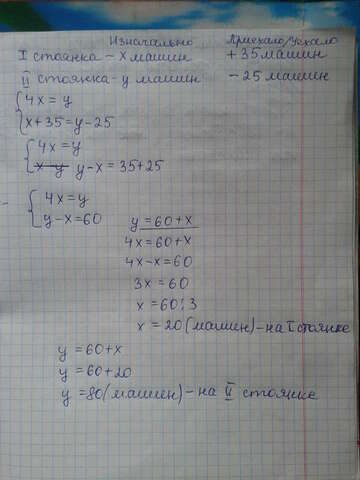 Изначально Приехало/Уехало
I стоянка - x машин +35 машин
II стоянка - y машин -25 машин
4x = y
x + 35 = y - 25
4x = y
x - y y - x = 35 + 25
4x = y
y - x = 60
y = 60 + x
4x = 60 + x
4x - x = 60
3x = 60
x = 60 : 3
x = 20 (машин) - на I стоянке
y = 60 + x
y = 60 + 20
y = 80 (машин) - на II стоянке